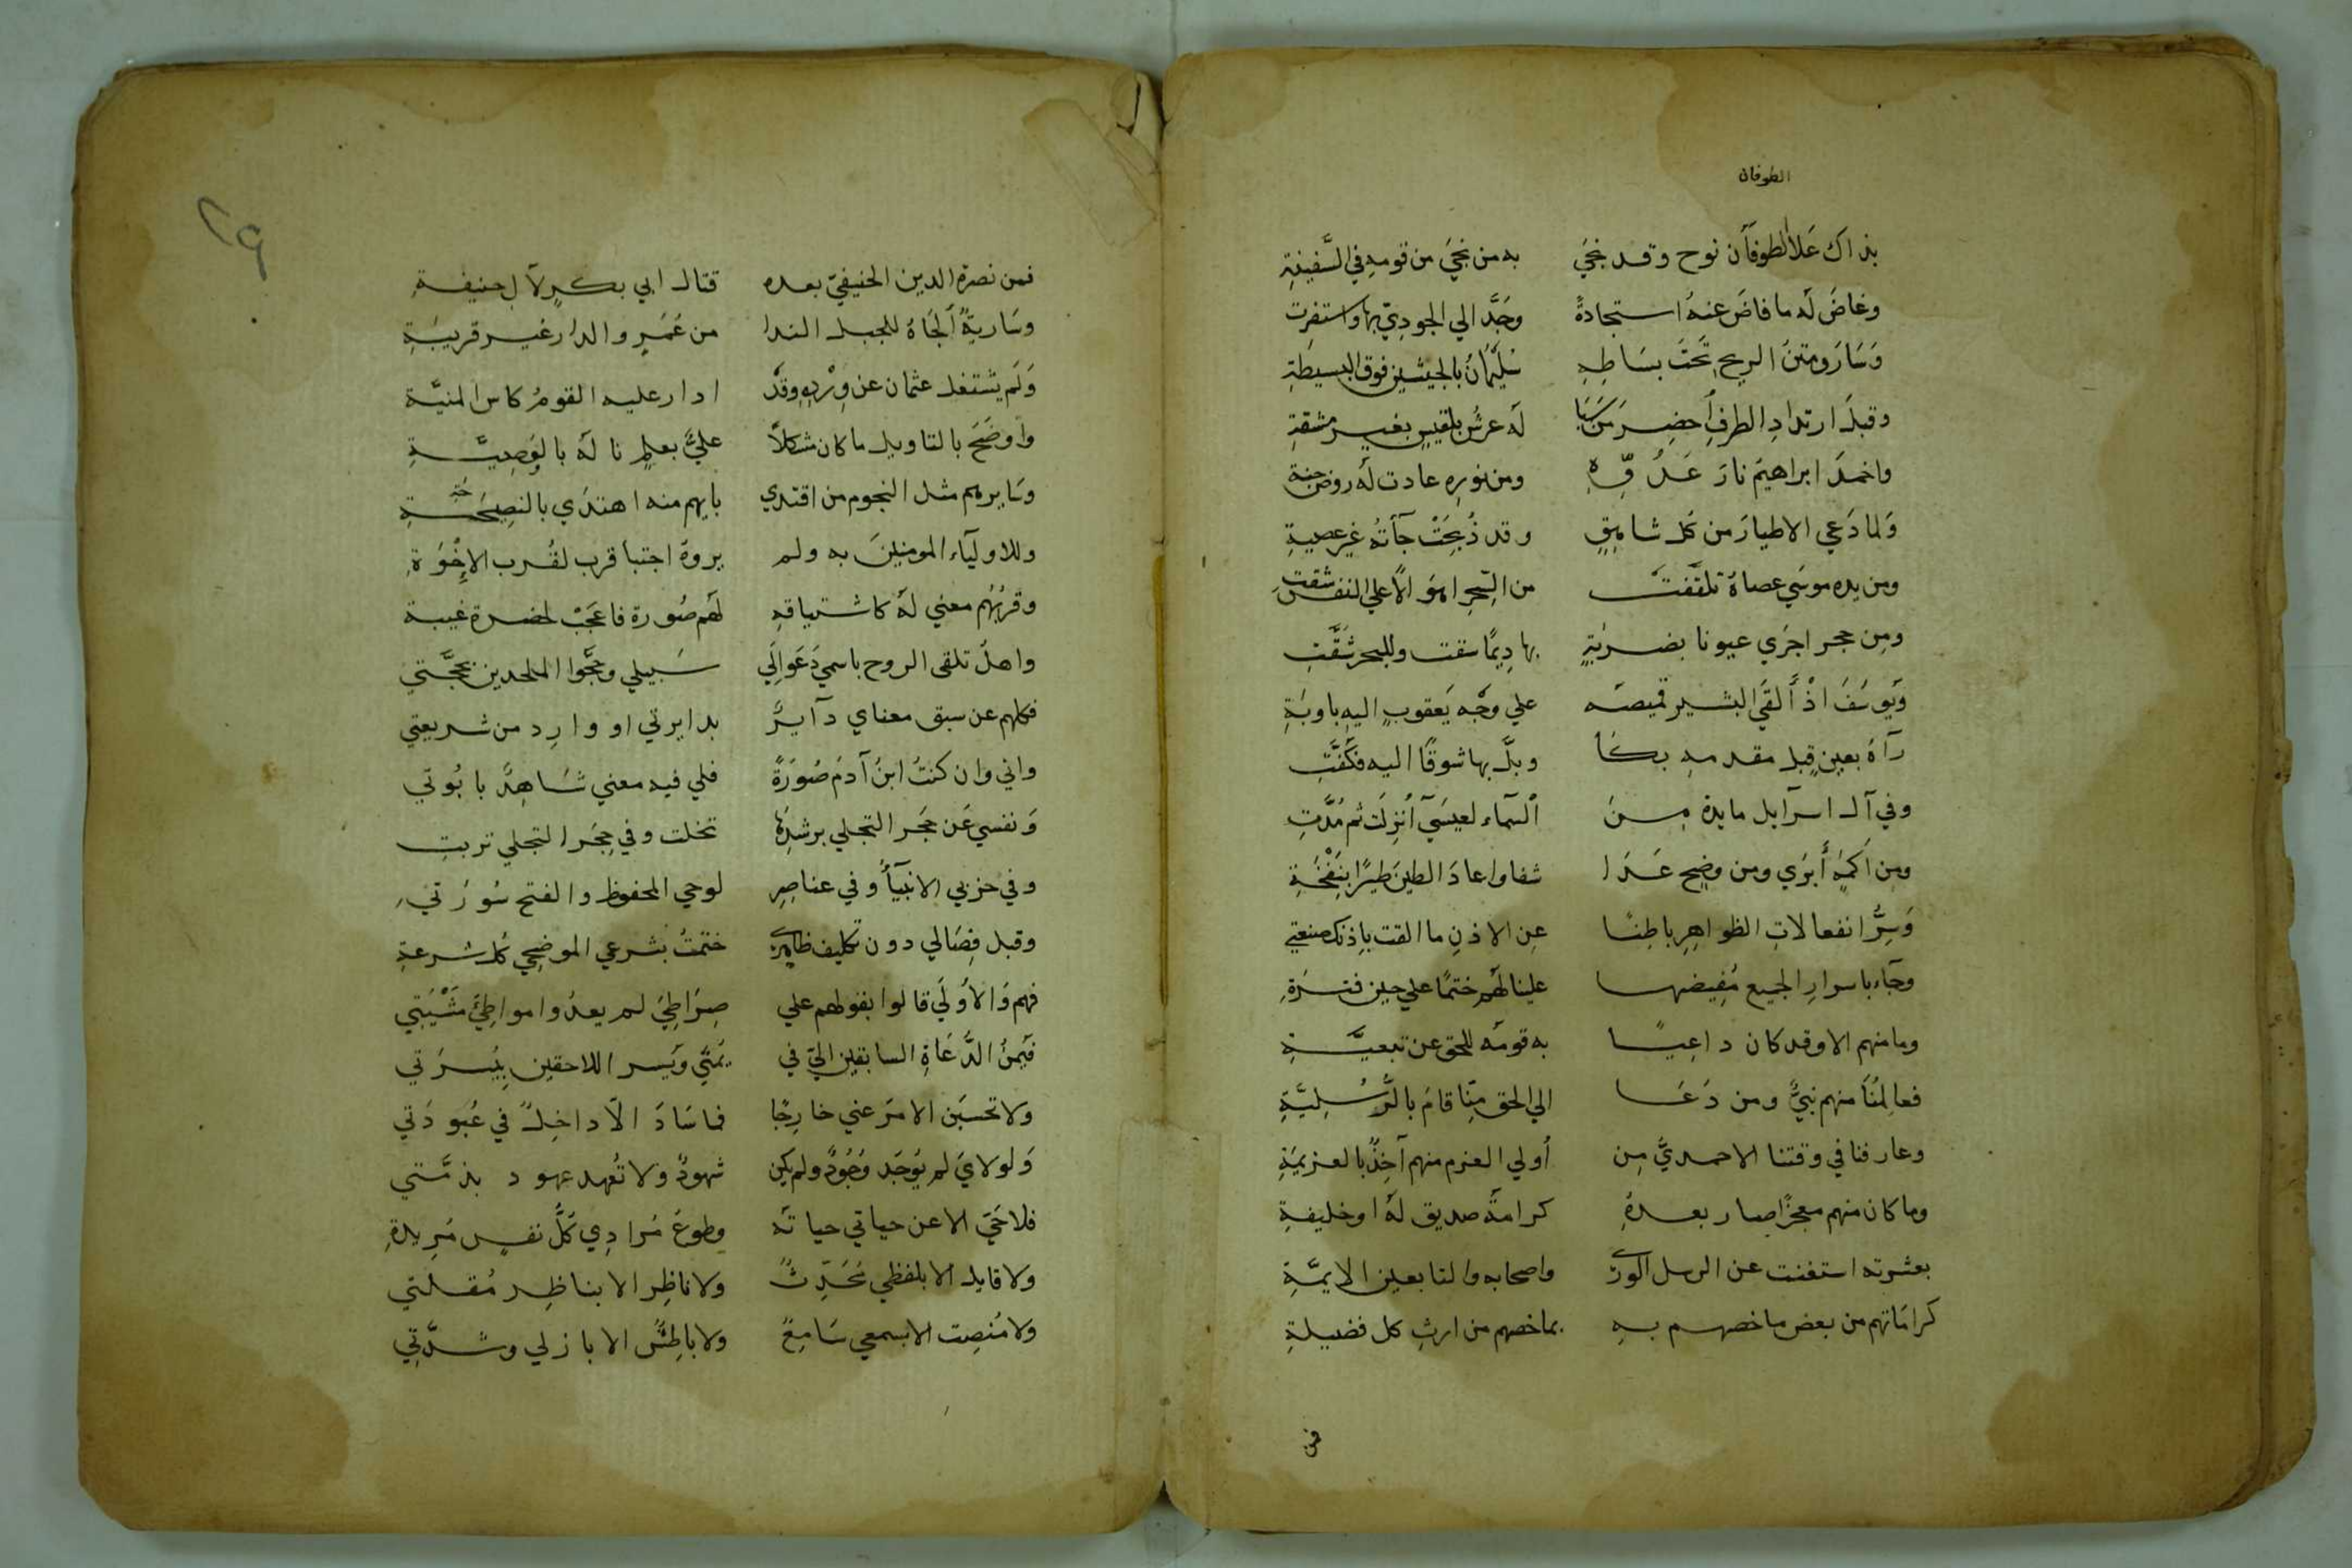 الطوفان
بذاك عَلاَ الطوفآن نوح وقد نجَي به من نجَي من قومهِ في السَّفِينةِ
وغاضَ لَه ما فاضَ عنهُ استجادةً وجَدَّ الي الجودِيّ بها واستقرت
وَسَارَ ومتنُ الريح تَحتَ بسَاطِهِ سُلَيمَانُ بالجيشينِ فوق البسيطةِ
وقبلَ ارتدادِ الطرفِ أُحضِرَ مِن سَبَا لَه عرشُ بلقيسٍ بغير مشقةِ
واخمدَ ابراهيمَ نارَ عَدُوِّهِ ومن نورِه عادت لَه روضَ جنةِ
وَلما دَعي الاطيارَ من كل شاهِقٍ وقد ذُبِحَتْ جآءتهُ غيرَ عصيةِ
ومن يده موسَي عصاهُ تلقَّفتْ من السِّحرِ اهوَالاً علي النفس شقت
ومِن حجر اجرَي عيونا بضربَةٍ بها دِيمًا سقت وللبحر شَقَّتِ
وَيوسَفَ اذْ أَلقَي البشير قميصَه علي وَجه يَعقوبٍ اليهِ باوبَةِ
رَآهُ بعينٍ قبل مقدمهِ بكَا وبلَّ بها شوقًا اليه فكَفَّتِ
وفي آل اسرآيل مايدة مِنَ السمآء لعيسَي أُنزِلَت ثم مُدَّتِ
ومِن اَكمَهٍ أَبرَي ومن وضحٍ عَدَا شفا واعادَ الطينَ طيرًا بنَفْخَةِ
وَسِرُّ انفعالاتِ الظواهِرِ باطِنًا عنِ الاذنِ ما القت باذنك صنعتي
وجآء باسرارِ الجميع مُفِيضها علينا لهَم ختمًا علي حين فترَةِ
وما منهم الا وقد كان داعِيًا به قومَه للحق عن تبعيَّةِ
فعالمُنَا منهم نبيٌّ ومن دَعَا الي الحق مِنّا قامَ بالرُّسُلِيَّةِ
وعارفنا في وقتنا الاحمديُّ مِن أُولي العزم منهم آخِذٌ بالعزيمَةِ
وما كان منهم معجزًا صار بعدهُ كرامةَ صديق لَهُ او خليفةِ
بعثرته استغنت عن الرسل الورَي واصحابه والتابعين الايمَّةِ
كرامَاتهم من بعض ما خصهم بهِ بما خصهم من ارثِ كل فضيلةِ
فمن
فمن نصرة الدين الحنيفيّ بعده قتال ابي بكرٍ لآل حنيفةِ
وسَاريةٌ أَلجَاهُ للجبل الندا من عُمَرٍ والدار غير قريبَةِ
وَلَم يشتغل عثمان عن وِرْدِهِ وقَد ادار عليه القومُ كاس المنيَّةِ
وأوضَحَ بالتاويل ما كان مشكلاً عليٌّ بعلمٍ نالَهُ بالوَصِيَّةِ
وسَايرهم مثل النجوم من اقتدي بايهم منه اهتدَي بالنصِيحَةِ
وللاوليَآء المومنينَ به ولم يروهُ اجتبا قرب لقُرب الاخُوَّةِ
وقربُهُم معني لهُ كاشتياقهِ لهَم صُورة فاعجَبْ لحضرة غيبة
واهلُ تلقى الروح باسمي دَعَوا الَي سَبيلي وحَجُّوا الملحدين بحجَّتي
فكلهم عن سبق معناي دآيرٌ بدايرتي او وارِد من شريعتي
واني وان كنتُ ابنُ آدمَ صُورَةً فلي فيه معني شاهِدٌ بابُوتي
وَنفسي عَن حَجر التجلي برشدِهَا تخلت وفي حِجَر التجلي تربتِ
وفي حزبي الانبيَآ وفي عناصِرِ لوحي المحفوظ والفتح سُورَتي
وقبل فِصَالي دون تكليف ظاهري ختمتُ بشرعي الموضِحِي كل شرعةِ
فهم وَالاوُلَي قالوا بقولهم علي صِرَاطِي لم يعدُوا مواطِئَ مَشْيَتِي
فيُمنُ الدُّعَاةِ السابقين اليّ في يَمَنِّي وَيَسر اللاحقين بِيُسرَتي
ولا تحسَبَن الامرَ عني خارِجًا فما سَادَ الاَّ داخِلٌ في عُبودَتي
وَلولايَ لم يُوجَد وُجُودٌ ولم يكن شهودٌ ولا تُعهد عهود بذمَّتي
فلا حَيّ الا عن حياتي حياتَه وطوعُ مُرادِي كُلُّ نفسٍ مُرِيدةِ
ولا قايل الا بلفظي مُحَدِّثٌ ولا ناظِر الا بناظِر مُقلتي
ولا مُنصِت الا بسمعي سَامِعٌ ولا باطِشٌ الا بازلي وشدَّتِي